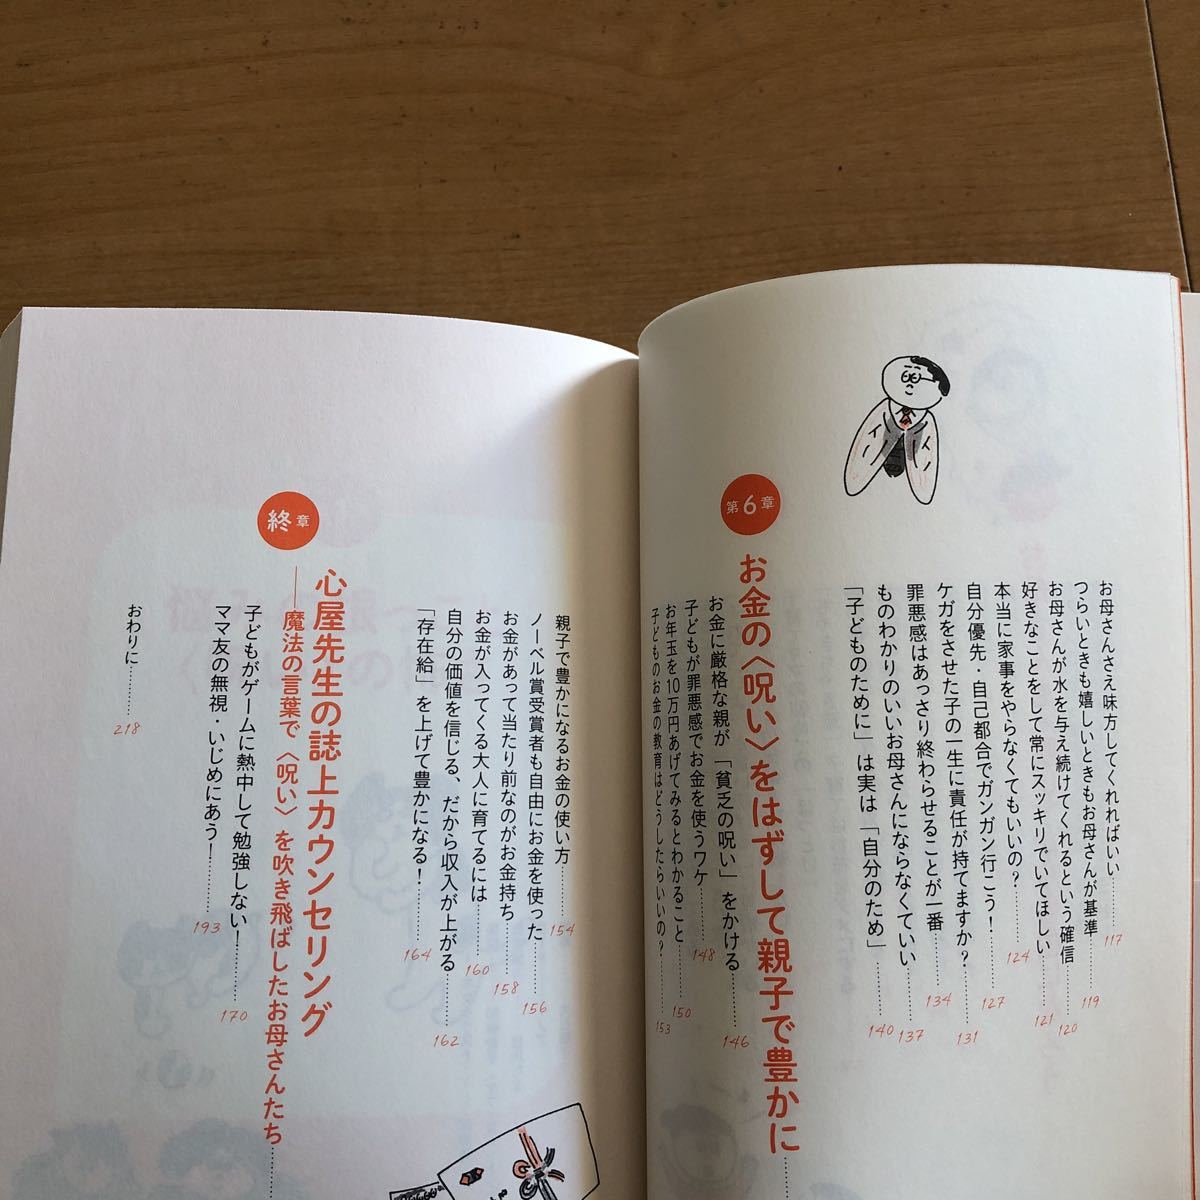 お母さんさえ味方してくれればいい……… 117
つらいときも嬉しいときもお母さんが基準……… 119
お母さんが水を与え続けてくれるという確信……… 120
好きなことをして常にスッキリでいてほしい……… 121
本当に家事をやらなくてもいいの？……… 124
自分優先・自己都合でガンガン行こう！……… 127
ケガをさせた子の一生に責任が持てますか？……… 131
罪悪感はあっさり終わらせることが一番……… 134
ものわかりのいいお母さんにならなくていい……… 137
「子どものために」は実は「自分のため」……… 140
第6章
お金の〈呪い〉をはずして親子で豊かに………
お金に厳格な親が「貧乏の呪い」をかける……… 146
子どもが罪悪感でお金を使うワケ……… 148
お年玉を10万円あげてみるとわかること……… 150
子どものお金の教育はどうしたらいいの？……… 153
親子で豊かになるお金の使い方……… 154
ノーベル賞受賞者も自由にお金を使った……… 156
お金があって当たり前なのがお金持ち……… 158
お金が入ってくる大人に育てるには……… 160
自分の価値を信じる、だから収入が上がる……… 162
「存在給」を上げて豊かになる！……… 164
終章
心屋先生の誌上カウンセリング
――魔法の言葉で〈呪い〉を吹き飛ばしたお母さんたち………
子どもがゲームに熱中して勉強しない！……… 170
ママ友の無視・いじめにあう！……… 193
おわりに……… 218